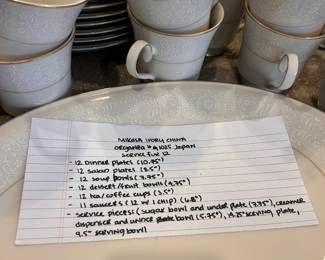 MIKASA IVORY CHINA
ORGANZA #A1025 JAPAN
SERVICE FOR 12
- 12 DINNER PLATES (10.75")
- 12 SALAD PLATES (8.5")
- 12 SOUP BOWLS (7.75")
- 12 DESSERT/FRUIT BOWLS (4.75")
- 12 TEA/COFFEE CUPS (3.5")
- 11 SAUCERS (12 W/ 1 CHIP) (6.8")
- SERVICE PIECES: (SUGAR BOWL AND UNDER PLATE (7.75"), CREAMER
DISPENSER AND UNDER PLATE BOWL (5.75"), 14.25" SERVING PLATE,
9.5" SERVING BOWL